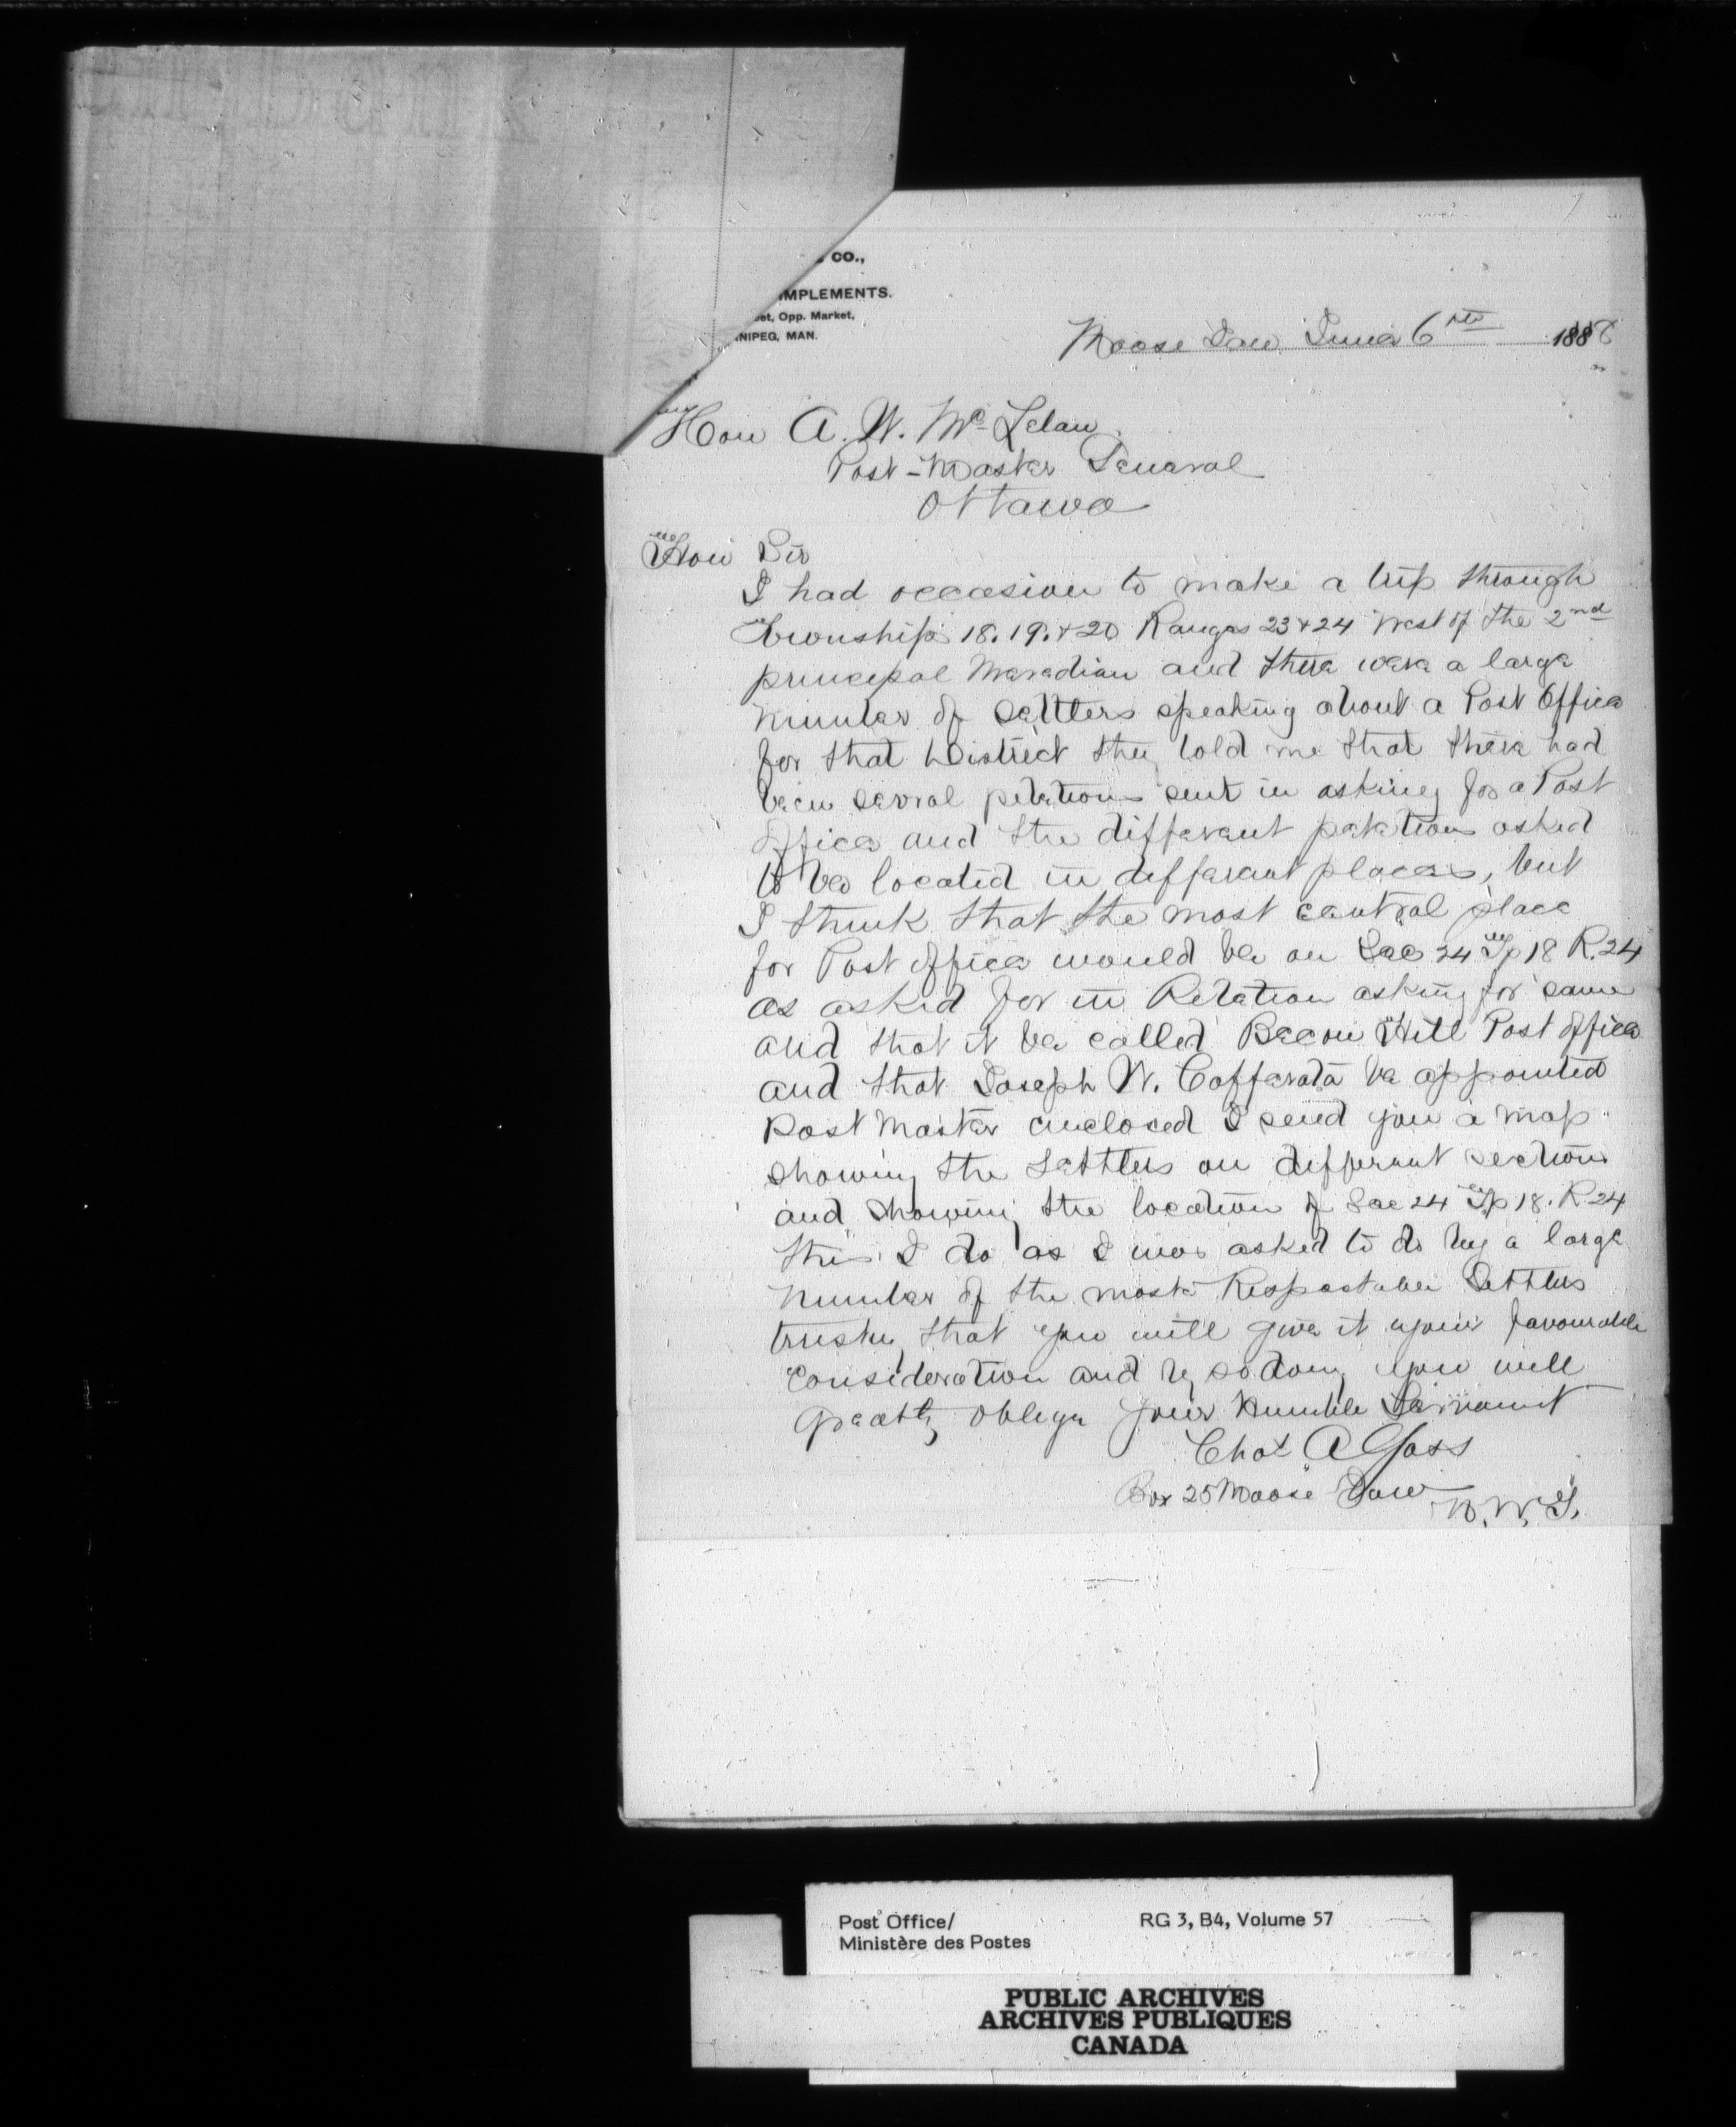 CO.,
IMPLEMENTS.
et, Opp. Market,
NIPEG, MAN.
Moose Jaw June 6th 1888
Hon A. W. McLelan
Post-Master General
Ottawa
Hon Sir
I had occasion to make a trip through
Township 18. 19. + 20 Ranges 23 + 24 West of the 2nd
principal Maredian and there were a large
number of Settlers speaking about a Post Office
for that District they told me that there had
been sevral petations sent in asking for a Post
Office and the different petations asked
to be located in different places, but
I think that the most central place
for Post office would be on Sec 24 Tp 18 R. 24
as asked for in Petation asking for same
and that it be called Bacon Hill Post office
and that Joseph W. Cafferata be appointed
Post Master enclosed I send you a map
showing the Settlers on different sections
and showing the location of Sec 24 Tp 18. R 24
this I do as I was asked to do by a large
number of the most Respectable Settlers
trusting that you will give it your favourable
consideration and by so doing you will
greatly oblige your Humble Servant
Chas A Gass
Box 25 Moose Jaw
N. W. T.
Post Office/ RG 3, B4, Volume 57
Ministère des Postes
PUBLIC ARCHIVES
ARCHIVES PUBLIQUES
CANADA